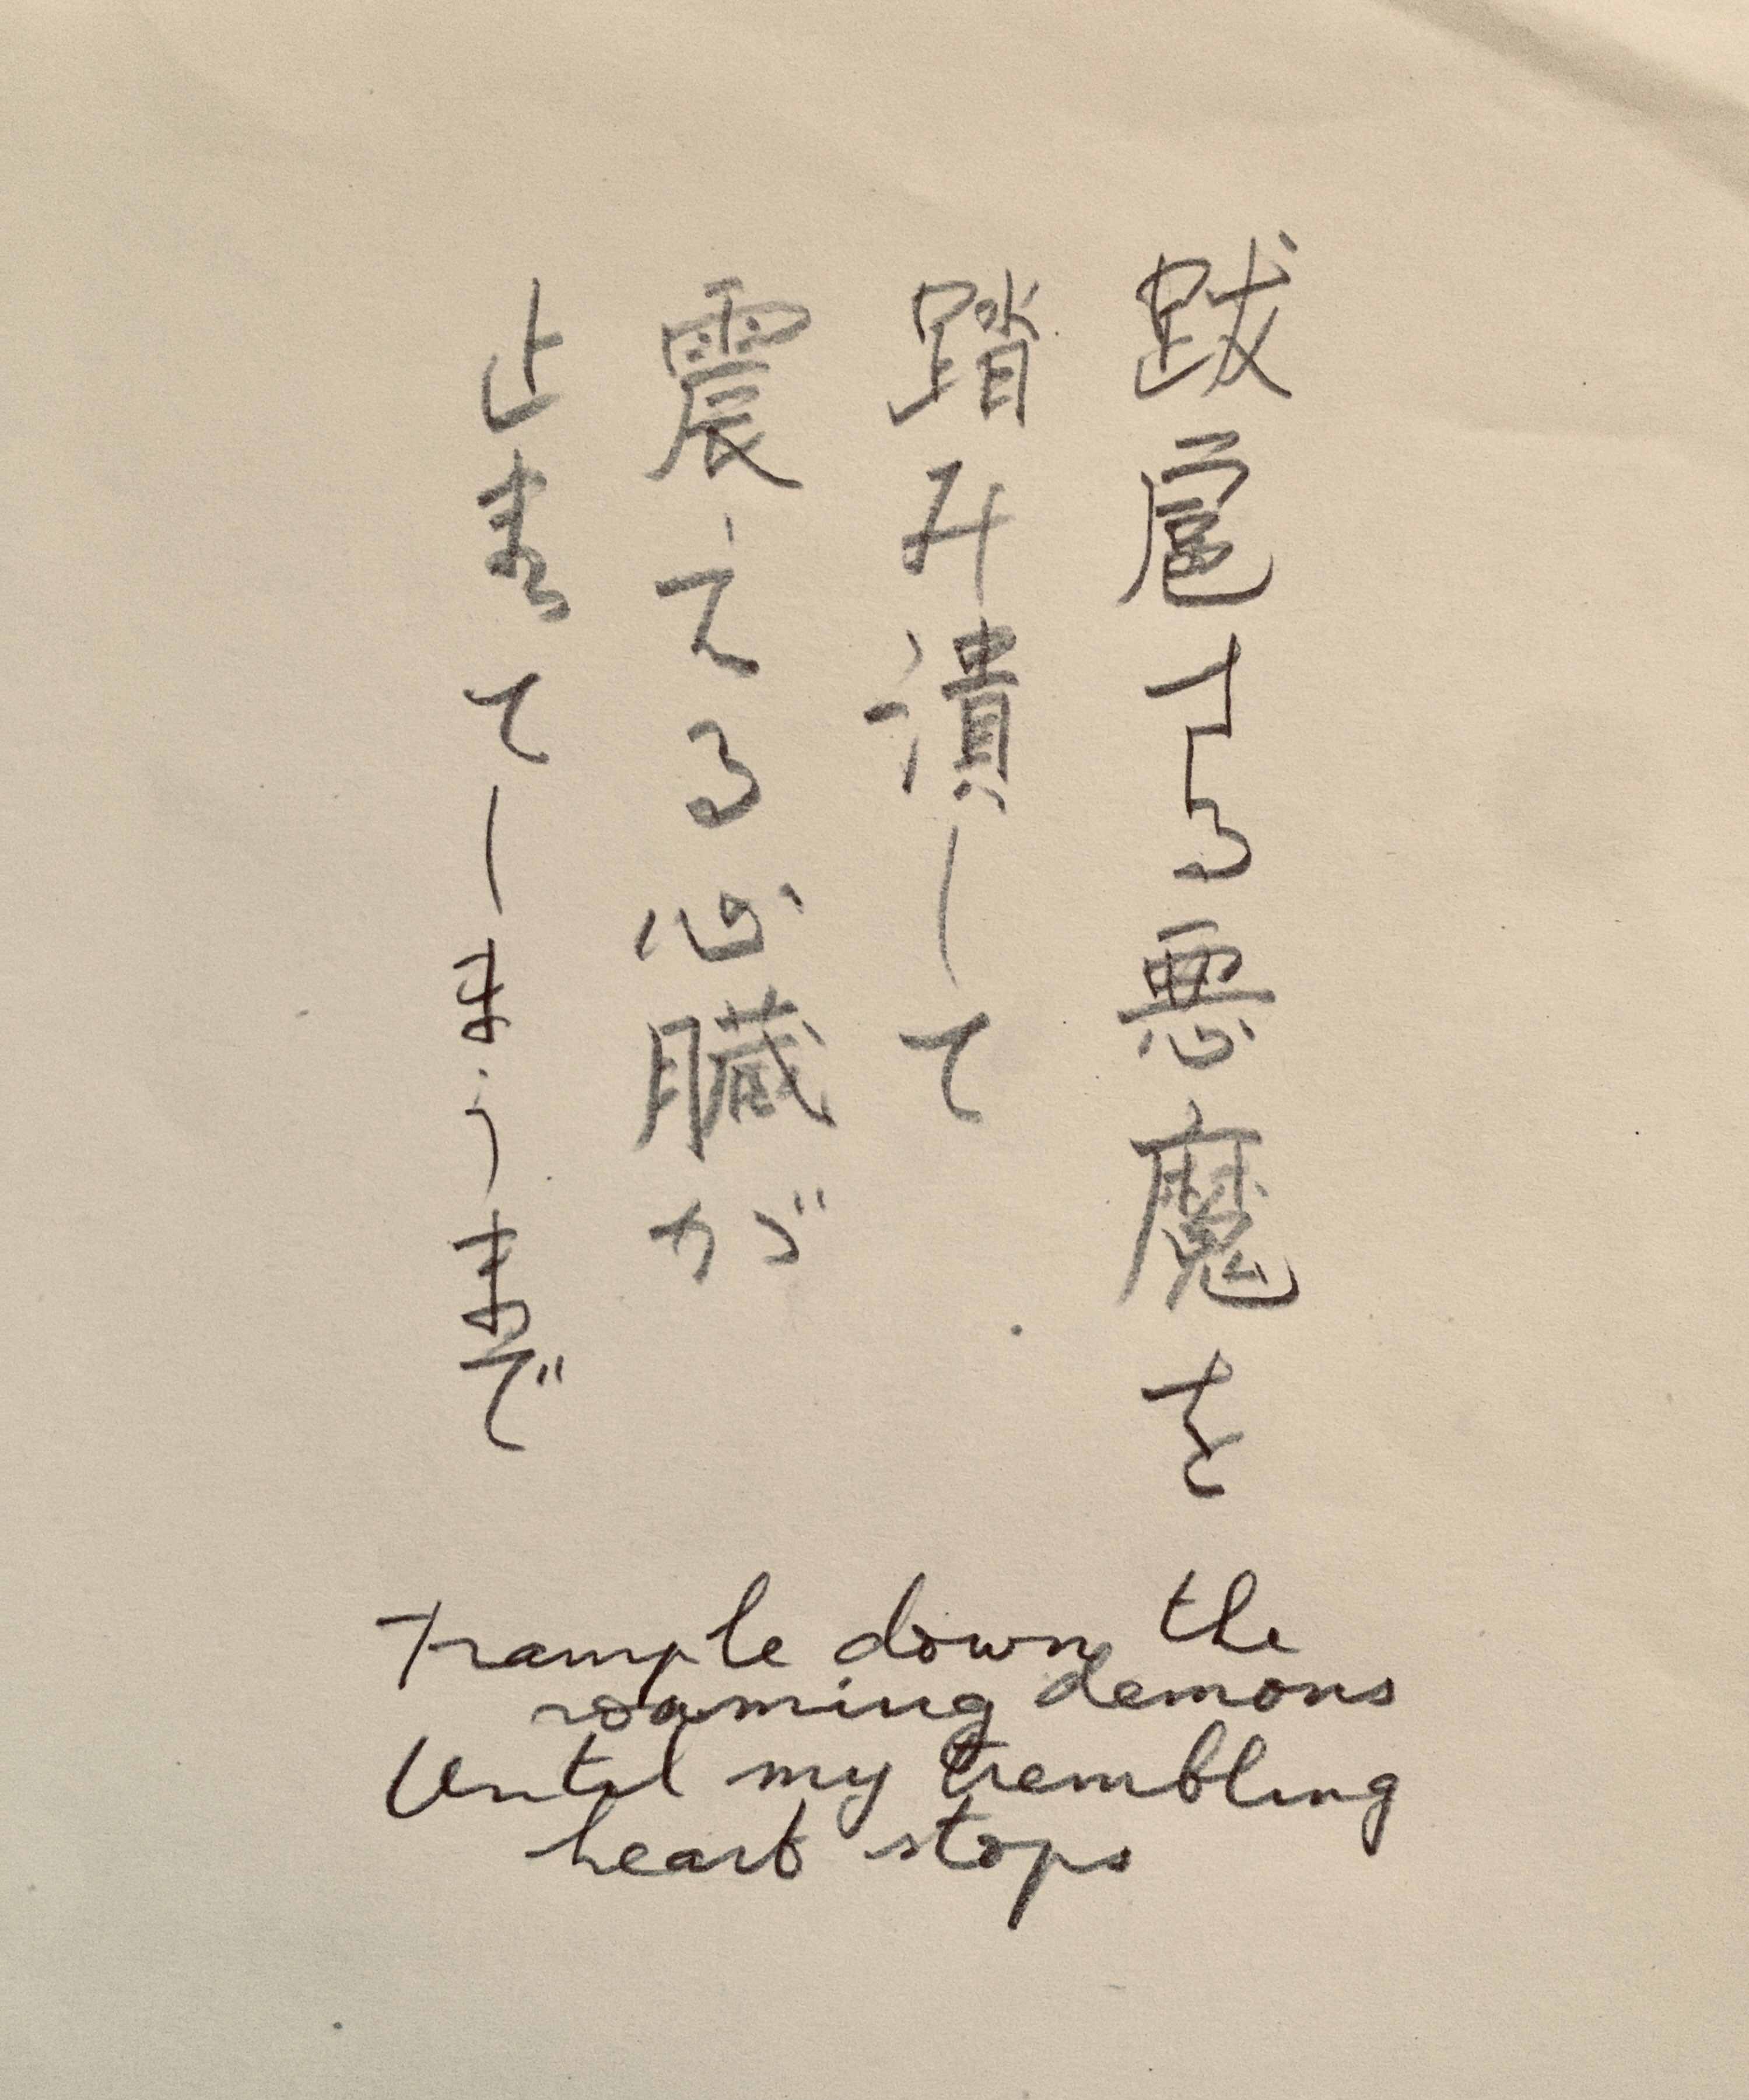 跋扈する悪魔を
踏み潰して
震える心臓が
止まってしまうまで
Trample down the
roaming demons
Until my trembling
heart stops